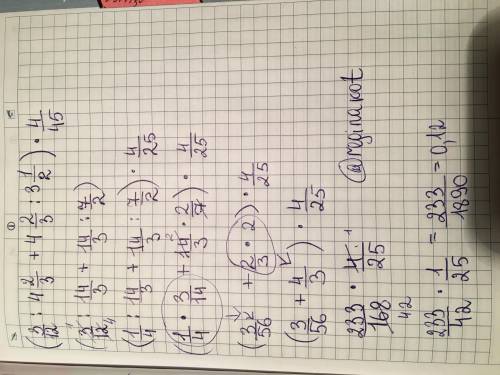 ①
(3/12 : 4 2/3 + 4 2/3 : 3 1/2) · 4/45
(3/12 : 14/3 + 14/3 : 7/2)
(1/4 : 14/3 + 14/3 : 7/2) · 4/25
(1/4 · 3/14 + 14/3 · 2/7) · 4/25
2
(3/56 + 2·2/3) · 4/25
(3/56 + 4/3) · 4/25
233/168 · 4/25 1
42
233/42 · 1/25 = 233/1890 = 0,12